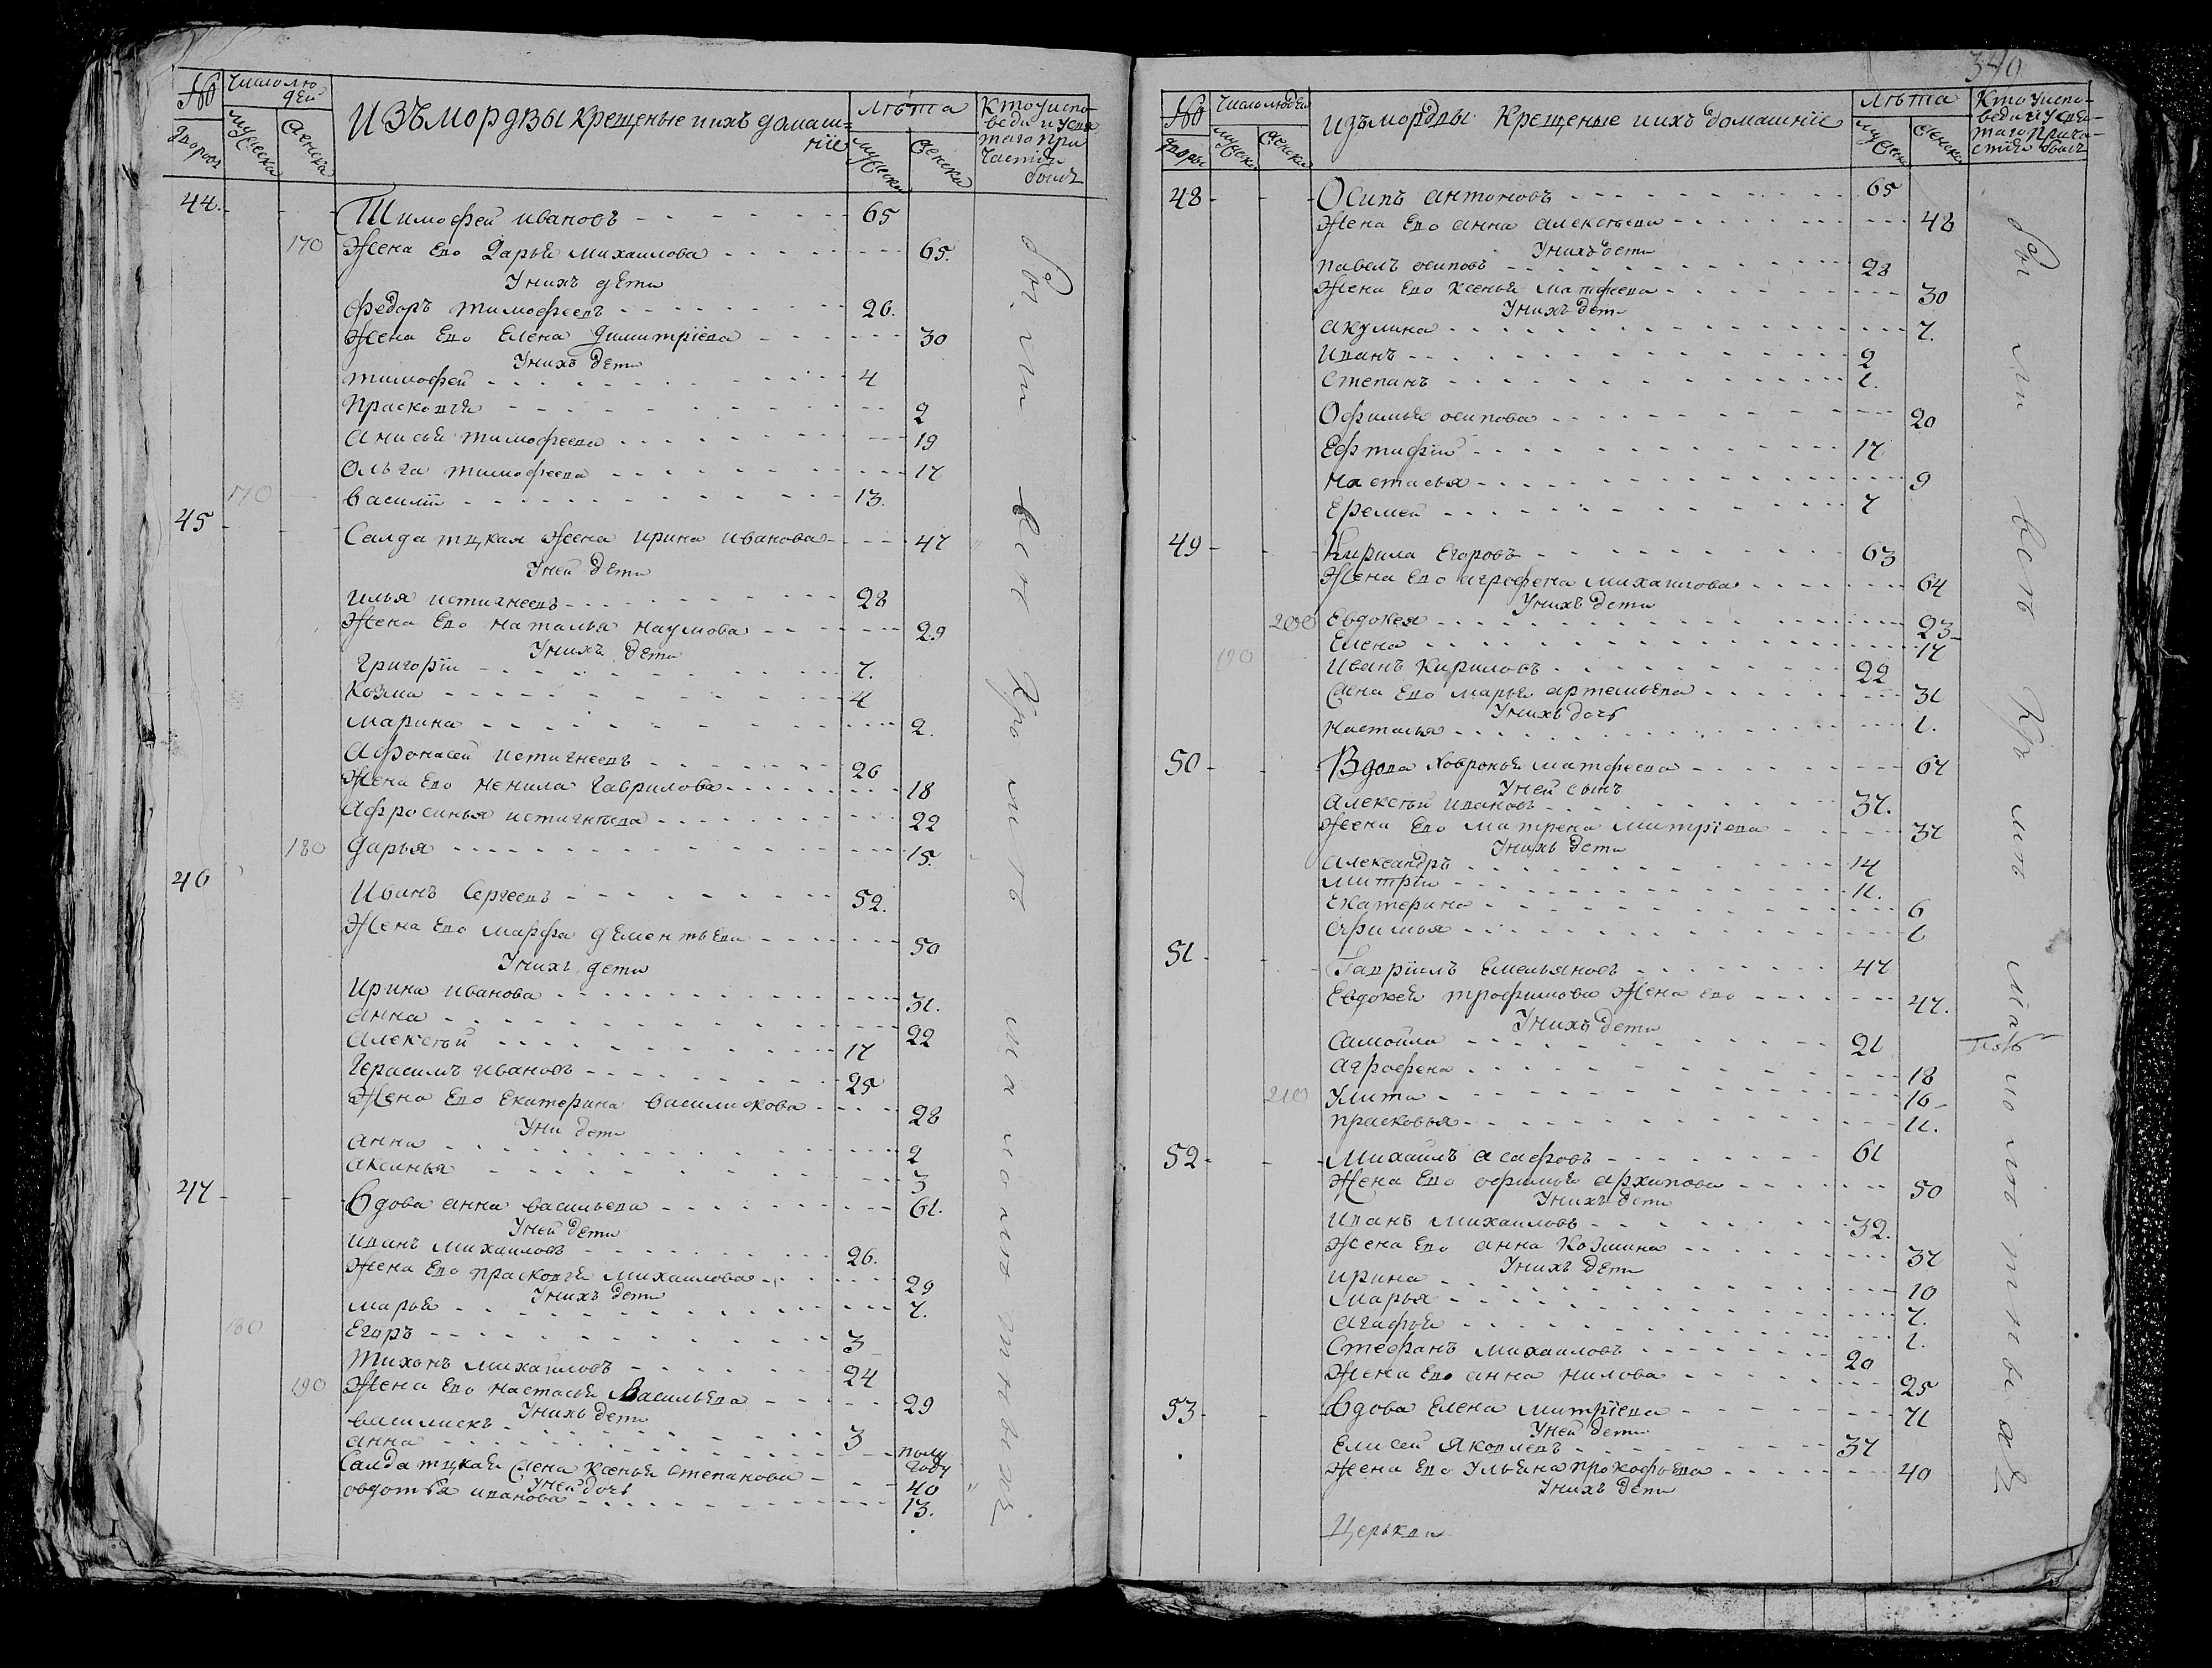 № дворовъ
Число людей
мужеска
женска
Изъ мордвы крещеные и ихъ домашніе
лѣта
мужеска
женска
Кто у исповеди и у святаго причастія были
44. Тимофей ивановъ 65
170 Жена Ево Дарья михаилова 65.
У нихъ дети
федоръ тимофеевъ 26.
Жена Ево Елена Димитріева 30
У нихъ дети
тимофей 4
Прасковья 2
Анисья тимофеева 19
Ольга тимофеева 17
170 василіи 13.
45 Салдатцкая жена ирина иванова 47
У ней дети
илья истигнеевъ 28
Жена Ево наталья наумова 29
У нихъ дети
Григоріи 7.
Козма 4
марина 2.
Афонасей истигнеевъ 26
Жена Ево ненила гаврилова 18
Афросинья истигнѣева 22
180 дарья 15.
46 Иванъ Сергеевъ 52.
Жена Ево марфа дементьева 50
У нихъ дети
Ирина иванова 31.
анна 22
алексѣй 17
Герасимъ ивановъ 25
Жена Ево Екатерина василискова 28
У ни дети
анна 2
аксинья 3
47 Вдова анна васильева 61.
У ней дети
иванъ михаиловъ 26.
Жена Ево прасковья михаилова 29
У нихъ дети
марья 7.
180 Егоръ 3
Тихонъ михаиловъ 24
190 Жена Ево настасья Васильева 29
У нихъ дети
василискъ 3
анна полу году
Салдатцкая жена ксенья степанова 40
У ней дочь
овдотья иванова 13.
были вси кро ми ть ма ло лѣ тн ы хъ
340
№ дворы
Число людей
мужеска
женска
Изъ мордвы Крещеные и ихъ домашніе
лѣта
мужеска
женска
Кто у исповеди и у святаго причастія были
48 Осипъ антоновъ 65
Жена Ево анна алексѣева 48
У нихъ дети
павелъ осиповъ 28
Жена Ево ксенья матфеева 30
У нихъ дети
акулина 7.
Иванъ 2
Степанъ 1.
Офимья осипова 20
Ефтифіи 17
настасья 9
Еремеи 7
49 Кирила Егоровъ 63
Жена Ево аграфена михаилова 64
У нихъ дети
200 Евдокея 23
Елена 17
190 Иванъ Кириловъ 22
Жена Ево марья артемьева 31
У нихъ дочь
настасья 1.
50 Вдова Ховронья матфеева 67
У ней сынъ
Алексѣй ивановъ 37.
Жена Ево матрена митріева 37
У нихъ дети
Александръ 14
митріи 11.
Екатерина 6
офимья 1
51 Гавріилъ Емельяновъ 47
Евдокея трофимова Жена ево 47.
У нихъ дети
Самоила 21
аграфена 18
210 Улита 16
прасковья 11.
52 Михаилъ асафовъ 61
Жена Ево офимья архипова 50
У нихъ дети
иванъ михаиловъ 32.
Жена Ево анна козмина 37
У нихъ дети
ирина 10
марья 7.
агафья 1.
Стефанъ михаиловъ 20
Жена Ево анна нилова 25
53 Вдова Елена митріева 71
У ней дети
Елисей Яковлевъ 37
Жена Ево Ульяна прокофьева 40
У нихъ дети
Церькви
бы ли вси кро ми ма ло лѣ тн ы хъ